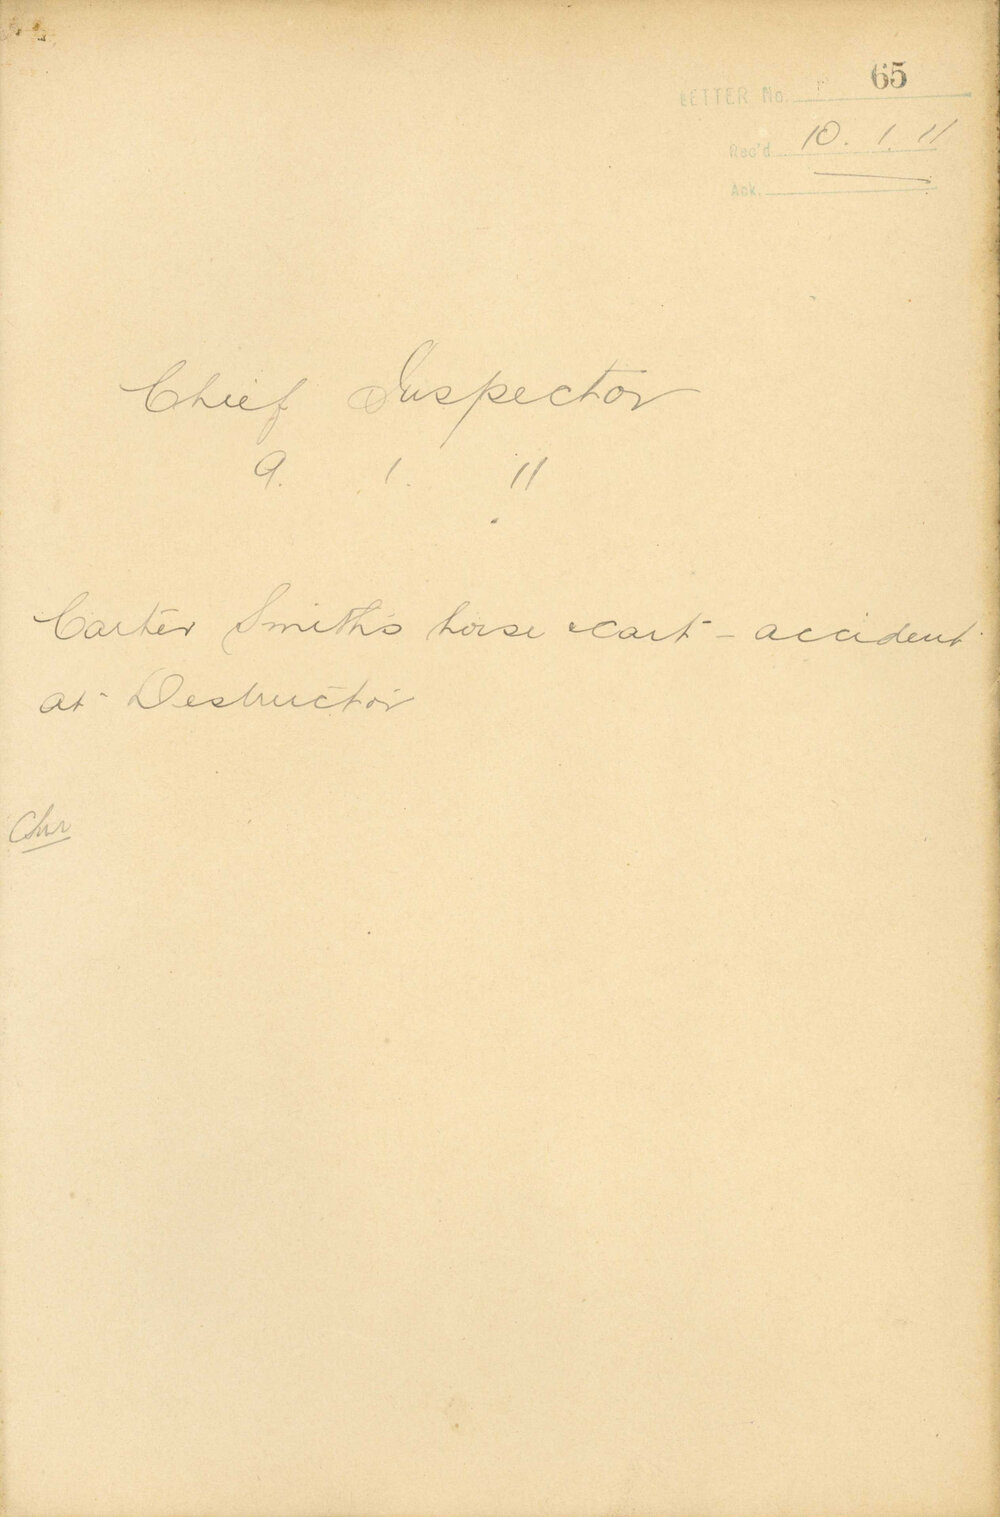 LETTER No. 65
Rec'd 10. 1. 11
Ack.
Chief Inspector
9. 1. 11
Carter Smith's horse & cart - accident
at Destructor